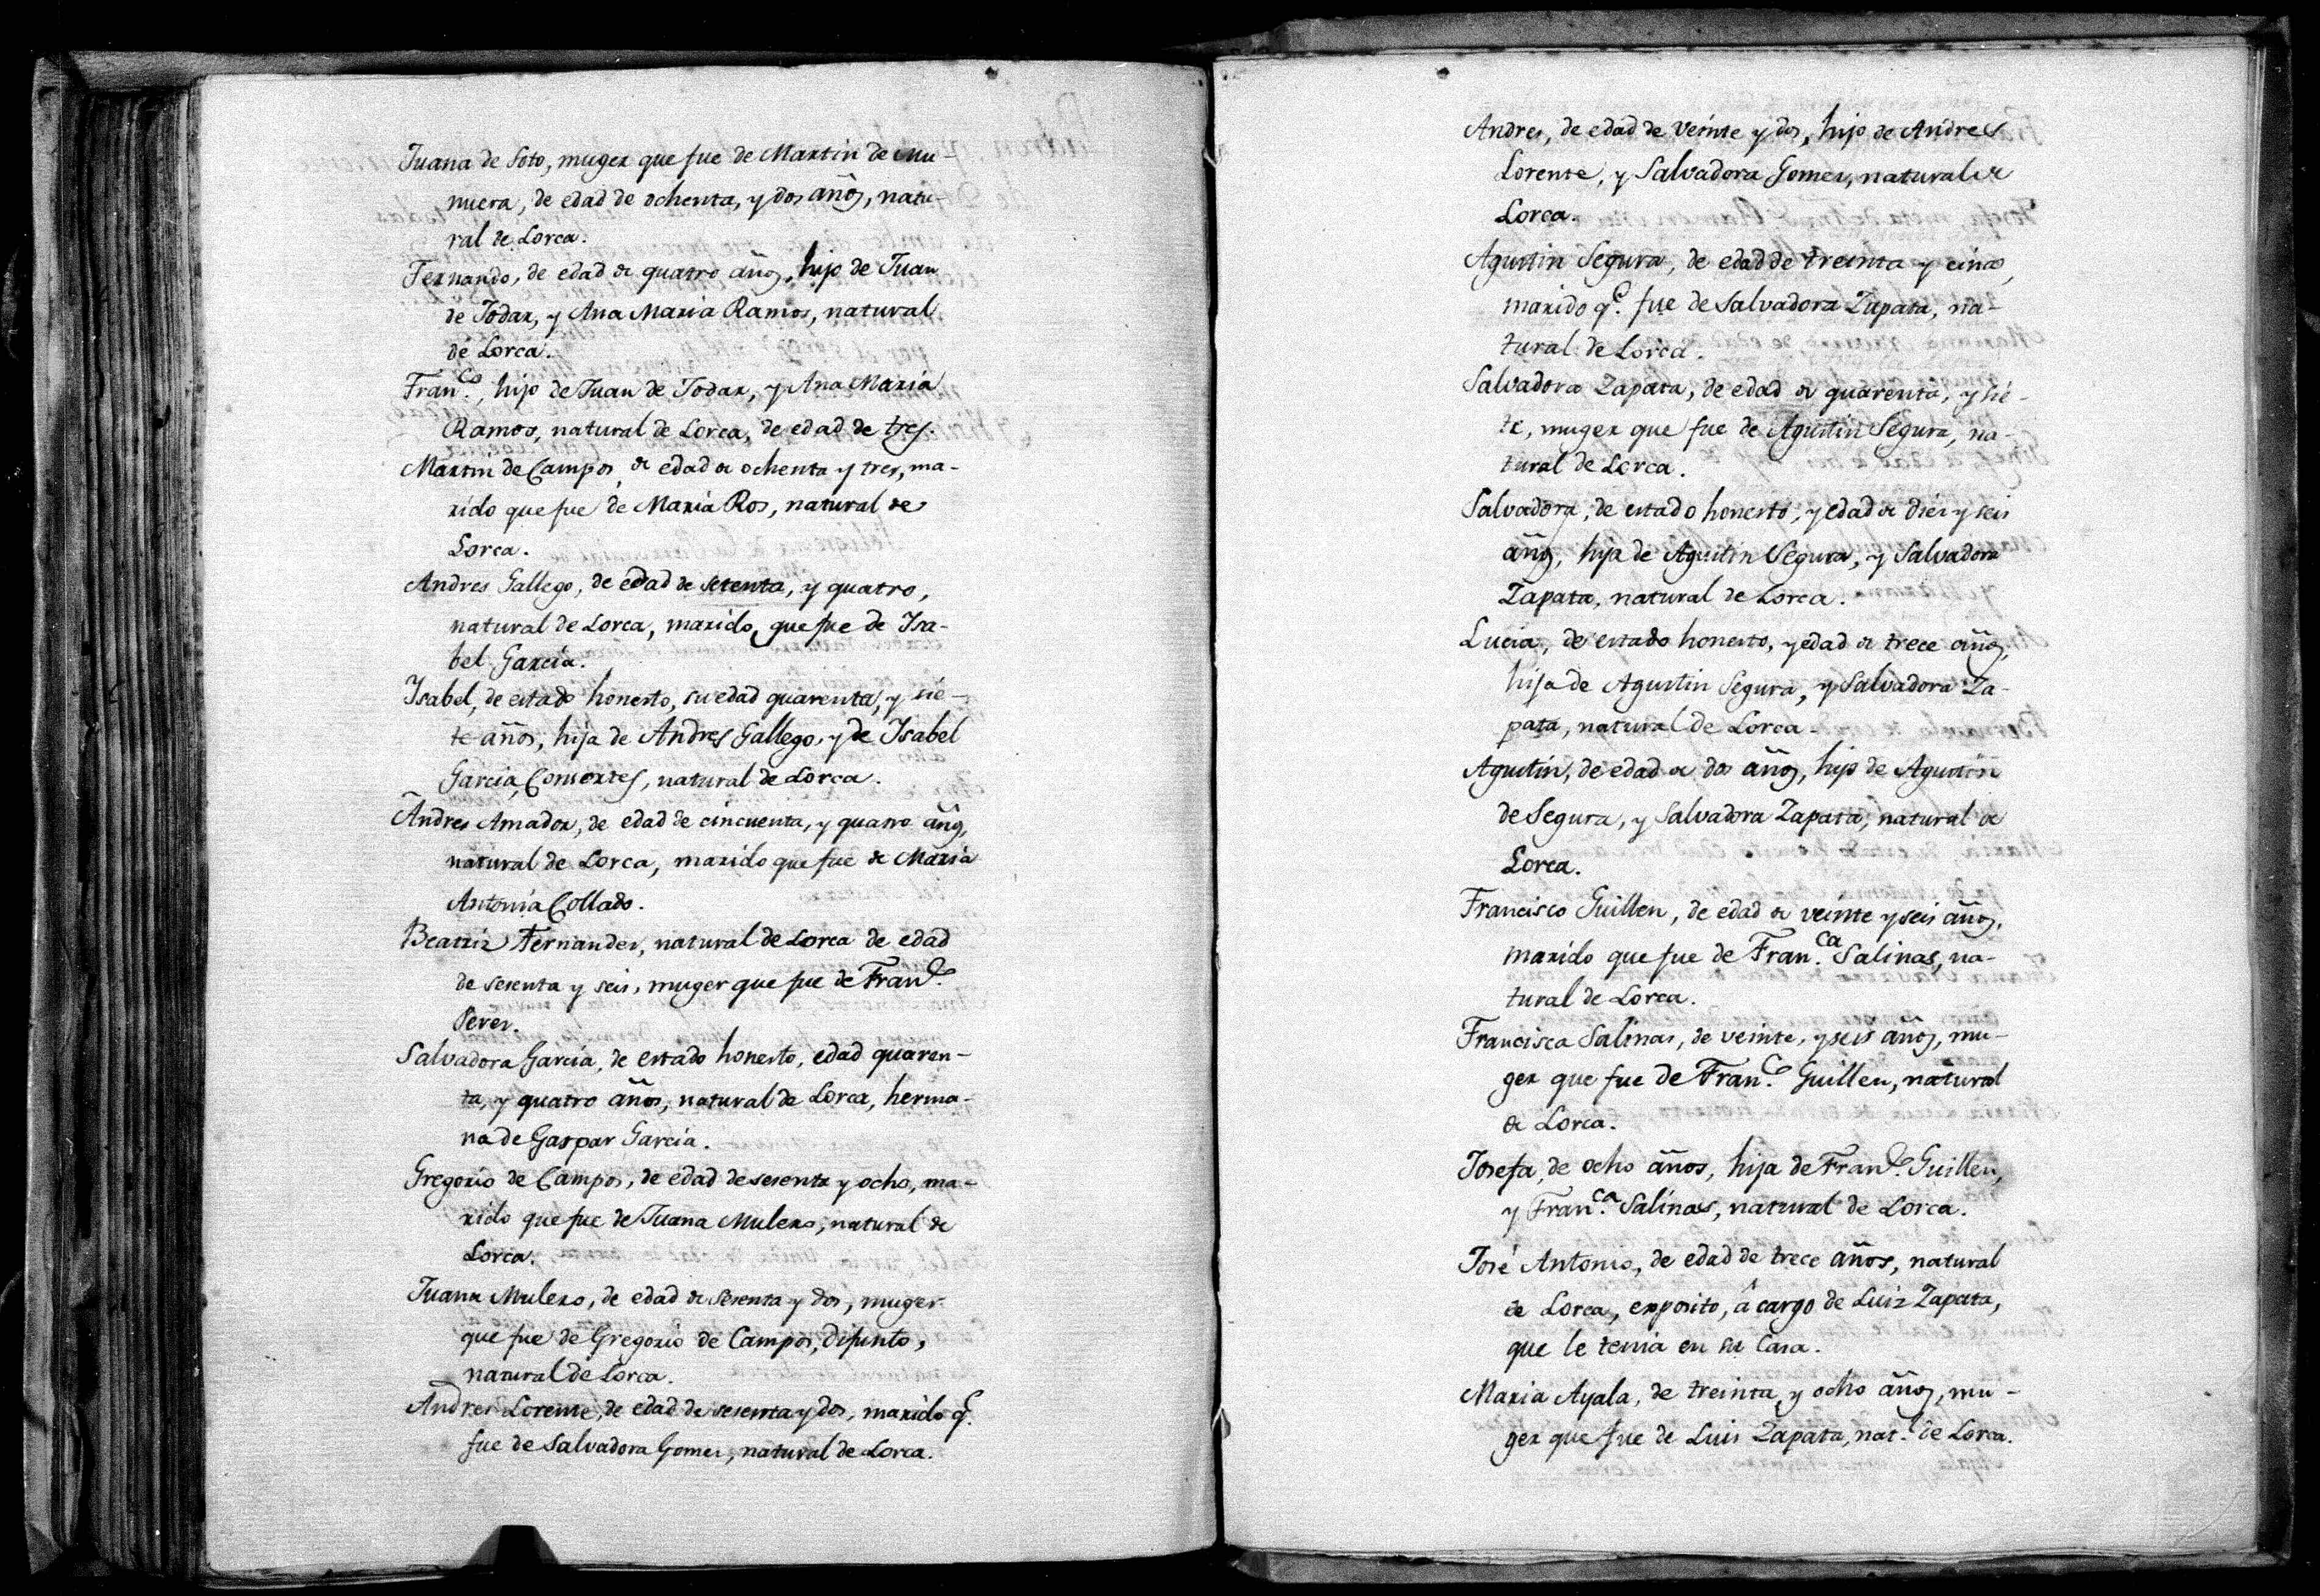 Juana de Soto, muger que fue de Martin de Mu-
nuera, de edad de ochenta, y dos años, natu-
ral de Lorca.
Fernando, de edad de quatro años, hijo de Juan
de Jodar, y Ana Maria Ramos, natural
de Lorca.
Fran.co, hijo de Juan de Jodar, y Ana Maria
Ramos, natural de Lorca, de edad de tres.
Martin de Campos, de edad de ochenta y tres, ma-
rido que fue de Maria Ros, natural de
Lorca.
Andres Gallego, de edad de setenta, y quatro,
natural de Lorca, marido, que fue de Isa-
bel Garcia.
Isabel, de estado honesto, su edad quarenta, y sie-
te años, hija de Andres Gallego, y de Isabel
Garcia, Consortes, natural de Lorca.
Andres Amador, de edad de cincuenta, y quatro años,
natural de Lorca, marido que fue de Maria
Antonia Collado.
Beatriz Fernandes, natural de Lorca de edad
de sesenta y seis, muger que fue de Fran.co
Peres.
Salvadora Garcia, de estado honesto, edad quaren-
ta, y quatro años, natural de Lorca, herma-
na de Gaspar Garcia.
Gregorio de Campos, de edad de sesenta y ocho, ma-
rido que fue de Juana Mulero, natural de
Lorca.
Juana Mulero, de edad de sesenta y dos, muger
que fue de Gregorio de Campos, difunto,
natural de Lorca.
Andres Lorente, de edad de sesenta y dos, marido q.e
fue de Salvadora Gomes, natural de Lorca.
Andres, de edad de Veinte y dos, hijo de Andres
Lorente, y Salvadora Gomes, natural de
Lorca.
Agustin Segura, de edad de treinta y cinco,
marido q.e fue de Salvadora Zapata, na-
tural de Lorca.
Salvadora Zapata, de edad de quarenta, y sie-
te, muger que fue de Agustin Segura, na-
tural de Lorca.
Salvadora, de estado honesto, y edad de dies y seis
años, hija de Agustin Segura, y Salvadora
Zapata, natural de Lorca.
Lucia, de estado honesto, y edad de trece años,
hija de Agustin Segura, y Salvadora Za-
pata, natural de Lorca.
Agustin, de edad de dos años, hijo de Agustin
de Segura, y Salvadora Zapata, natural de
Lorca.
Francisco Guillen, de edad de veinte y seis años,
marido que fue de Fran.ca Salinas, na-
tural de Lorca.
Francisca Salinas, de veinte, y seis años, mu-
ger que fue de Fran.co Guillen, natural
de Lorca.
Josefa, de ocho años, hija de Fran.co Guillen,
y Fran.ca Salinas, natural de Lorca.
José Antonio, de edad de trece años, natural
de Lorca, exposito, â cargo de Luis Zapata,
que le tenia en su Casa.
Maria Ayala, de treinta, y ocho años, mu-
ger que fue de Luis Zapata, nat.l de Lorca.